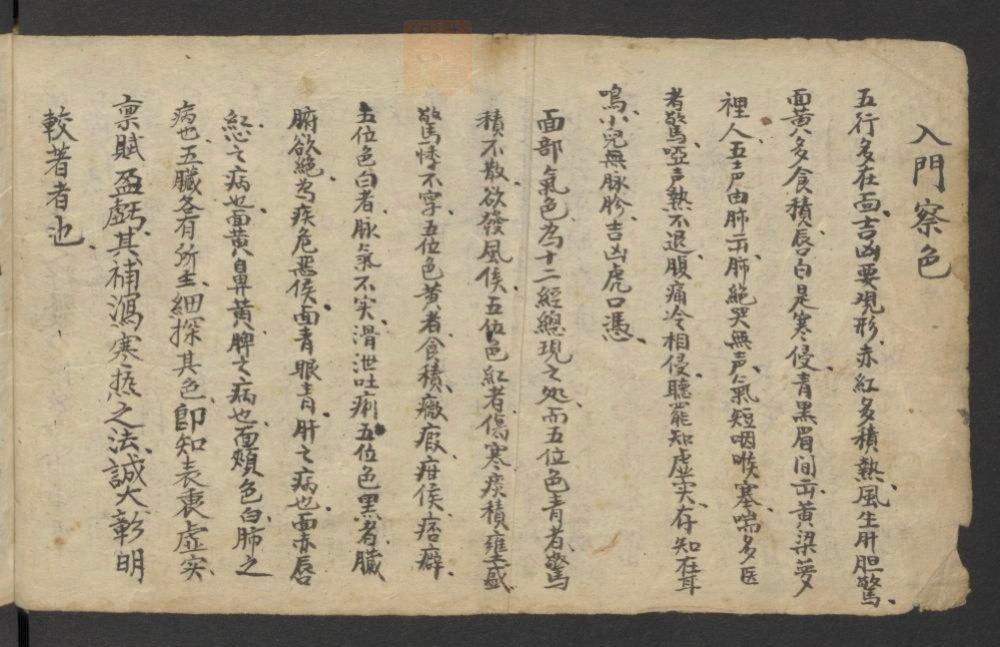 入門察色
五行多在面吉凶要現形赤紅多積熱風生肝胆驚
面黃多食積唇白是寒侵青黑眉间出黃梁夢
裡人五声由肺出肺絕哭無声氣短咽喉塞喘多医
者驚啞声熱不退腹痛冷相侵聽罷知虛实存知在耳
鳴小兒無脉胗吉凶虎口憑
面部氣色為十二經總現之処而五位色青者驚
積不散欲發風候五位色紅者傷寒痰積壅盛
驚悸不寧五位色黃者食積癥瘕疳候痞癖
五位色白者脉氣不实滑泄吐痢五位色黑者臟
腑欲絕為疾危惡候面青眼青肝之病也面赤唇
紅心之病也面黃鼻黃脾之病也面頰色白肺之
病也五臟各有所主細探其色即知表裏虛实
稟賦盈虧其補瀉寒热之法誠大彰明
較著者也